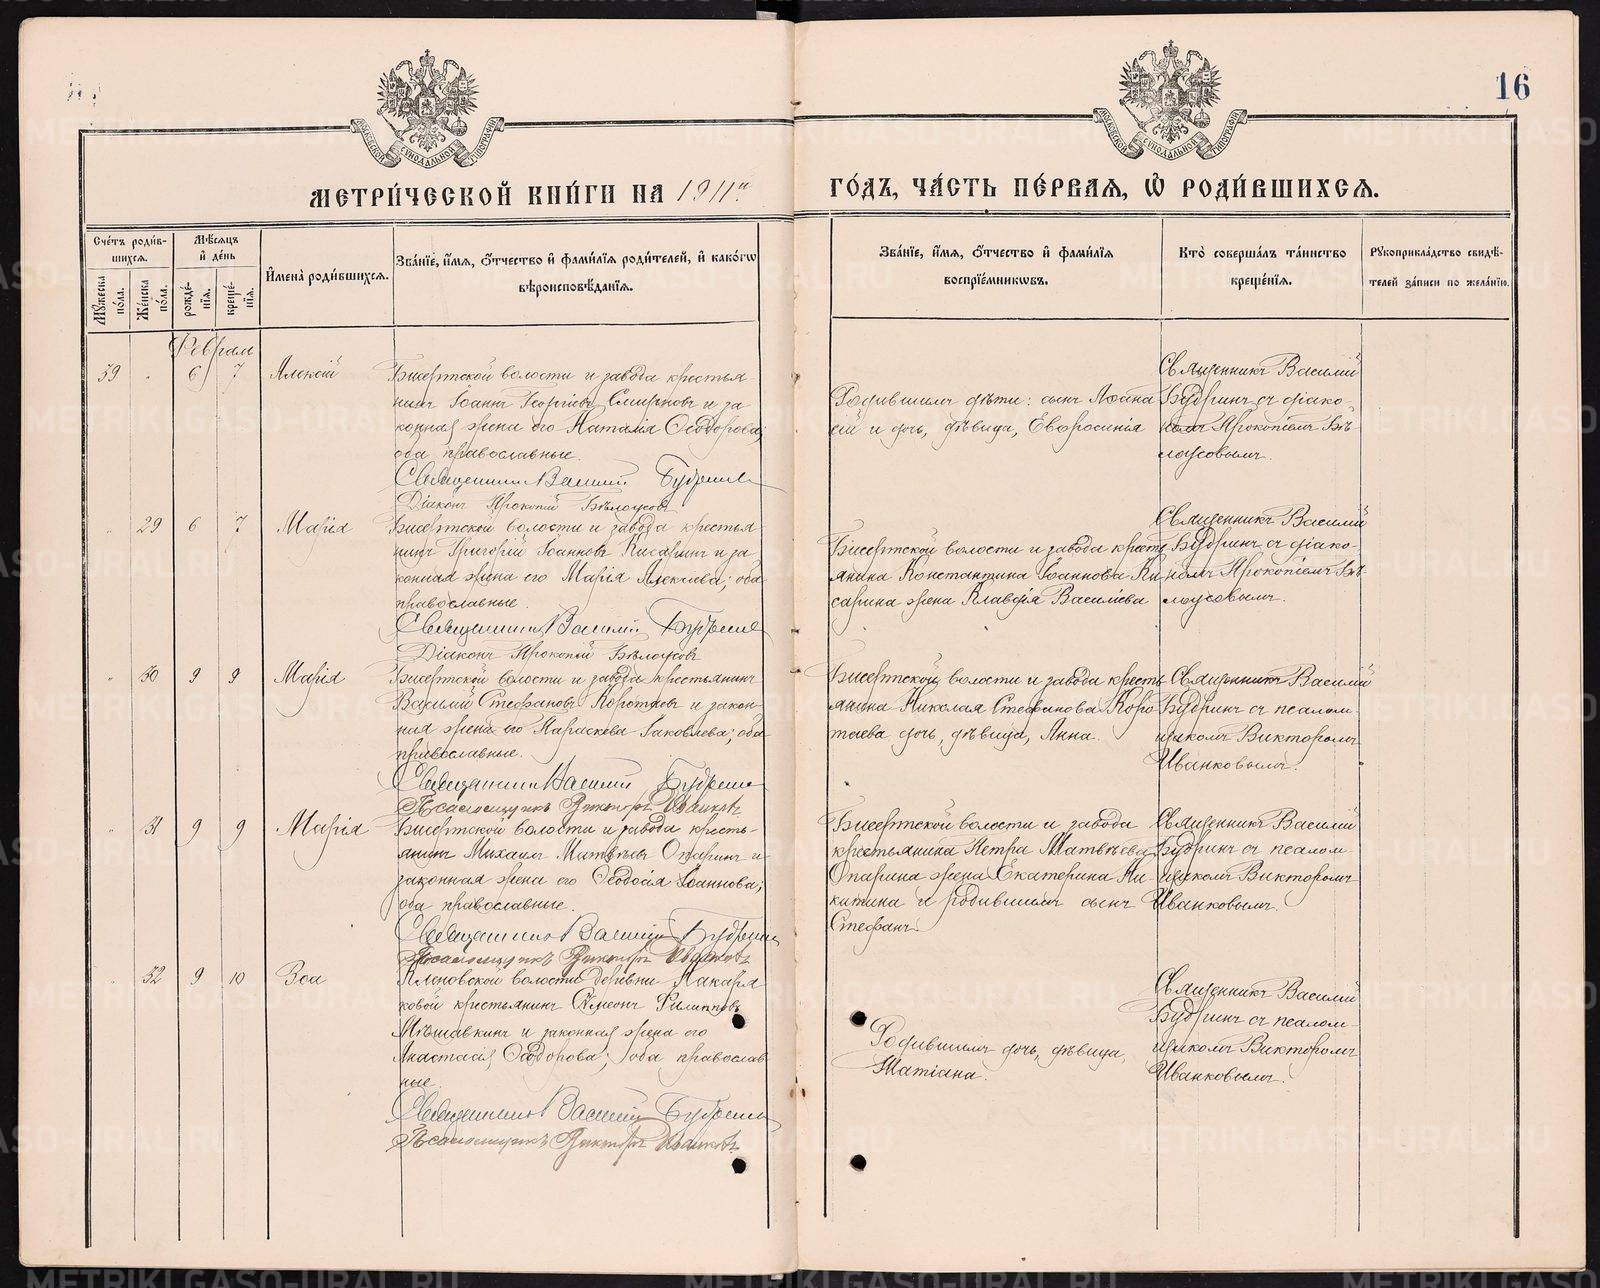 16
МЕТРИ́ЧЕСКОЙ КНИ́ГИ НА 1911й
ГО́ДЪ, ЧА́СТЬ ПЕ́РВАЯ, Ѡ҆ РОДИ́ВШИХСЯ.
Сче́тъ роди́в-
шихся.
Мѣ́сяцъ
и҆ де́нь
Мꙋ́жеска
по́ла.
Же́нска
по́ла.
рожде́-
нїя.
креще́-
нїя.
И҆мена̀ роди́вшихся.
Зва́нїе, и҆́мя, ѻ҆́тчество и҆ фами́лїя роди́телей, и҆ како́гѡ
вѣроисповѣ́данїя.
Зва́нїе, и҆́мя, ѻ҆́тчество и҆ фами́лїя
воспрїе́мникѡвъ.
Кто̀ соверша́лъ та́инство
креще́нїя.
Рꙋкоприкла́дство свидѣ́-
телей за́писи по жела́нїю.
Февраль
39 6 7 Алексій
Бисертской волости и завода крестья-
нинъ Іоаннъ Георгіевъ Смирновъ и за
конная жена его Наталія Ѳеодорова;
оба православные.
Священникъ Василій Будринъ
Діаконъ Прокопій Бѣлоусовъ
Родившимъ дѣти: сынъ
и дочь, дѣвица, Евфросинія
Священникъ Василій
Будринъ съ діако-
номъ Прокопіемъ Бѣ
лоусовымъ.
29 6 7 Марія
Бисертской волости и завода крестья
нинъ Григорій Іоанновъ Кисаринъ и за
конная жена его Марія Алексіева; оба
православные.
Священникъ Василій Будринъ
Діаконъ Прокопій Бѣлоусовъ
Бисертской волости и завода крестья
янина Константина Іоаннова Ки
сарина жена Клавдія Василіева
Священникъ Василій
Будринъ съ діако-
номъ Прокопіемъ Бѣ
лоусовымъ.
30 9 9 Марія
Бисертской волости и завода крестьянинъ
Василій Стефановъ Коротаевъ и закон-
ная жена его Параскева Іаковлева; оба
православные.
Священникъ Василій Будринъ
Псаломщикъ Викторъ Иванковъ
Бисертской волости и завода кресть
янина Николая Стефанова Коро
таева дочь, дѣвица, Анна.
Священникъ Василій
Будринъ съ псалом-
щикомъ Викторомъ
Иванковымъ.
31 9 9 Марія
Бисертской волости и завода кресть-
янинъ Михаилъ Матвѣевъ Опаринъ и
законная жена его Ѳеодосія Іоаннова;
оба православные.
Священникъ Василій Будринъ
Псаломщикъ Викторъ Иванковъ
Бисертской волости и завода
крестьянина Петра Матвѣева
Опарина жена Екатерина Ни-
китина и родившимъ сынъ
Стефанъ.
Священникъ Василій
Будринъ съ псалом-
щикомъ Викторомъ
Иванковымъ.
32 9 10 Зоа
Кленовской волости деревни Макаря
ковой крестьянинъ Сѵмеонъ Филипповъ
Мѣшавкинъ и законная жена его
Анастасія Ѳеодорова; оба православ
ные.
Священникъ Василій Будринъ
Псаломщикъ Викторъ Иванковъ
Родившимъ дочь, дѣвица,
Татіана.
Священникъ Василій
Будринъ съ псалом-
щикомъ Викторомъ
Иванковымъ.